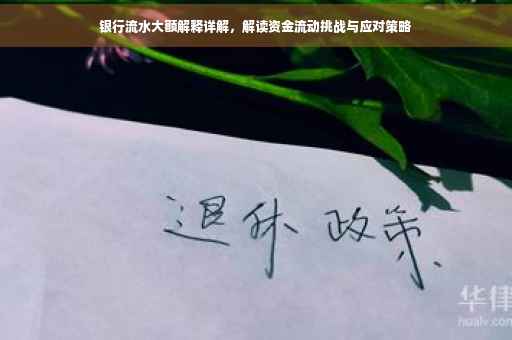 银行流水大额解释详解，解读资金流动挑战与应对策略
退休 政策
华律
hualv.com